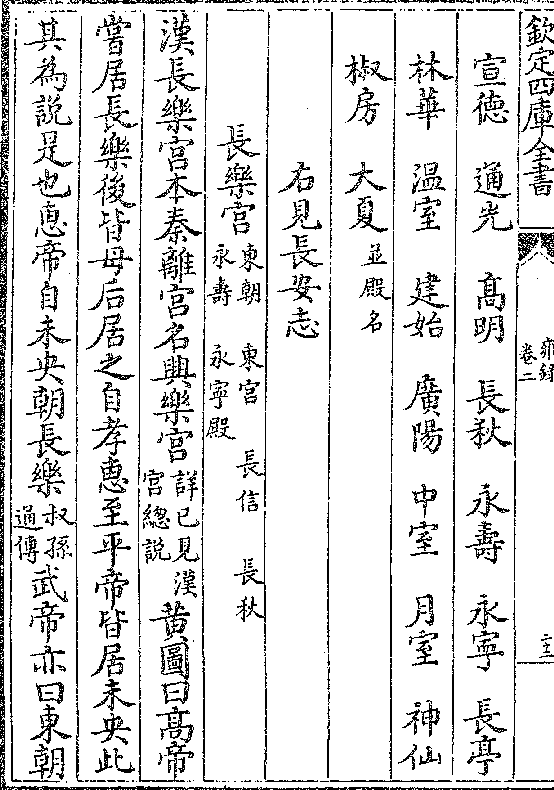 欽定四庫全書
雍録
卷二
宣德 通光 髙明 長秋 永壽 永寧 長亭
林華 溫室 建始 廣陽 中室 月室 神仙
椒房 大夏並殿名
右見長安志
長樂宮東朝 東宮 長信 長秋
永壽 永寧殿
漢長樂宮本秦離宮名興樂宮詳已見漢宮總説黄圖曰髙帝
嘗居長樂後皆母后居之自孝惠至平帝皆居未央此
其為説是也惠帝自未央朝長樂叔孫通傳武帝亦曰東朝